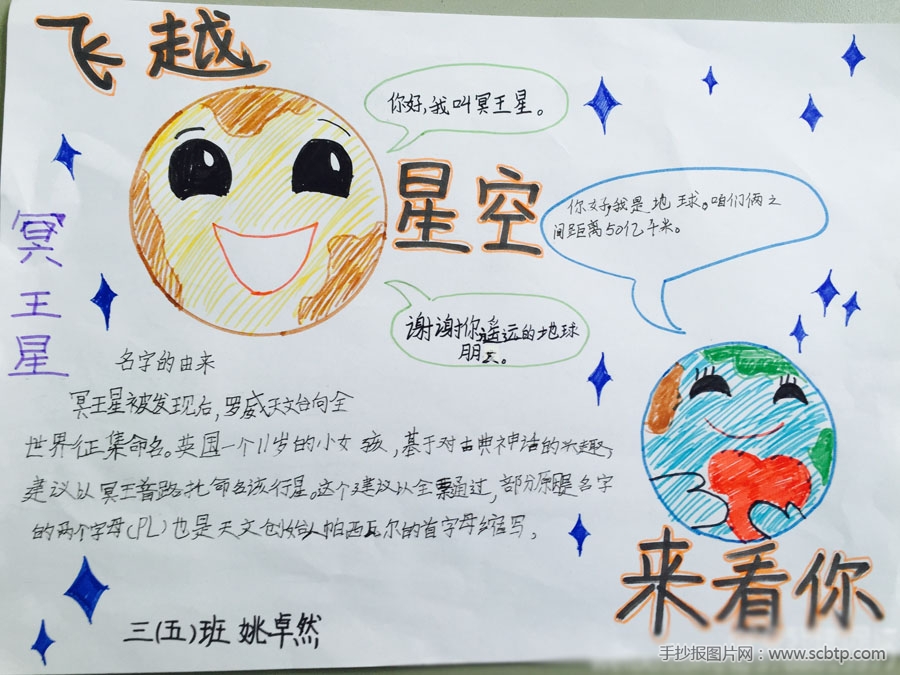 飞越
星空
来看你
冥王星
你好,我叫冥王星。
你好,我是地球。咱们俩之
间距离50亿千米。
谢谢你遥远的地球
朋友。
名字的由来
冥王星被发现后,罗威天文台向全
世界征集命名。英国一个11岁的小女孩,基于对古典神话的兴趣,
建议以冥王普路托命名该行星。这个建议以全票通过,部分原因是名字
的两个字母(PL)也是天文创始人帕西瓦尔的首字母缩写。
三(五)班 姚卓然
手抄报图片网:www.scbtp.com